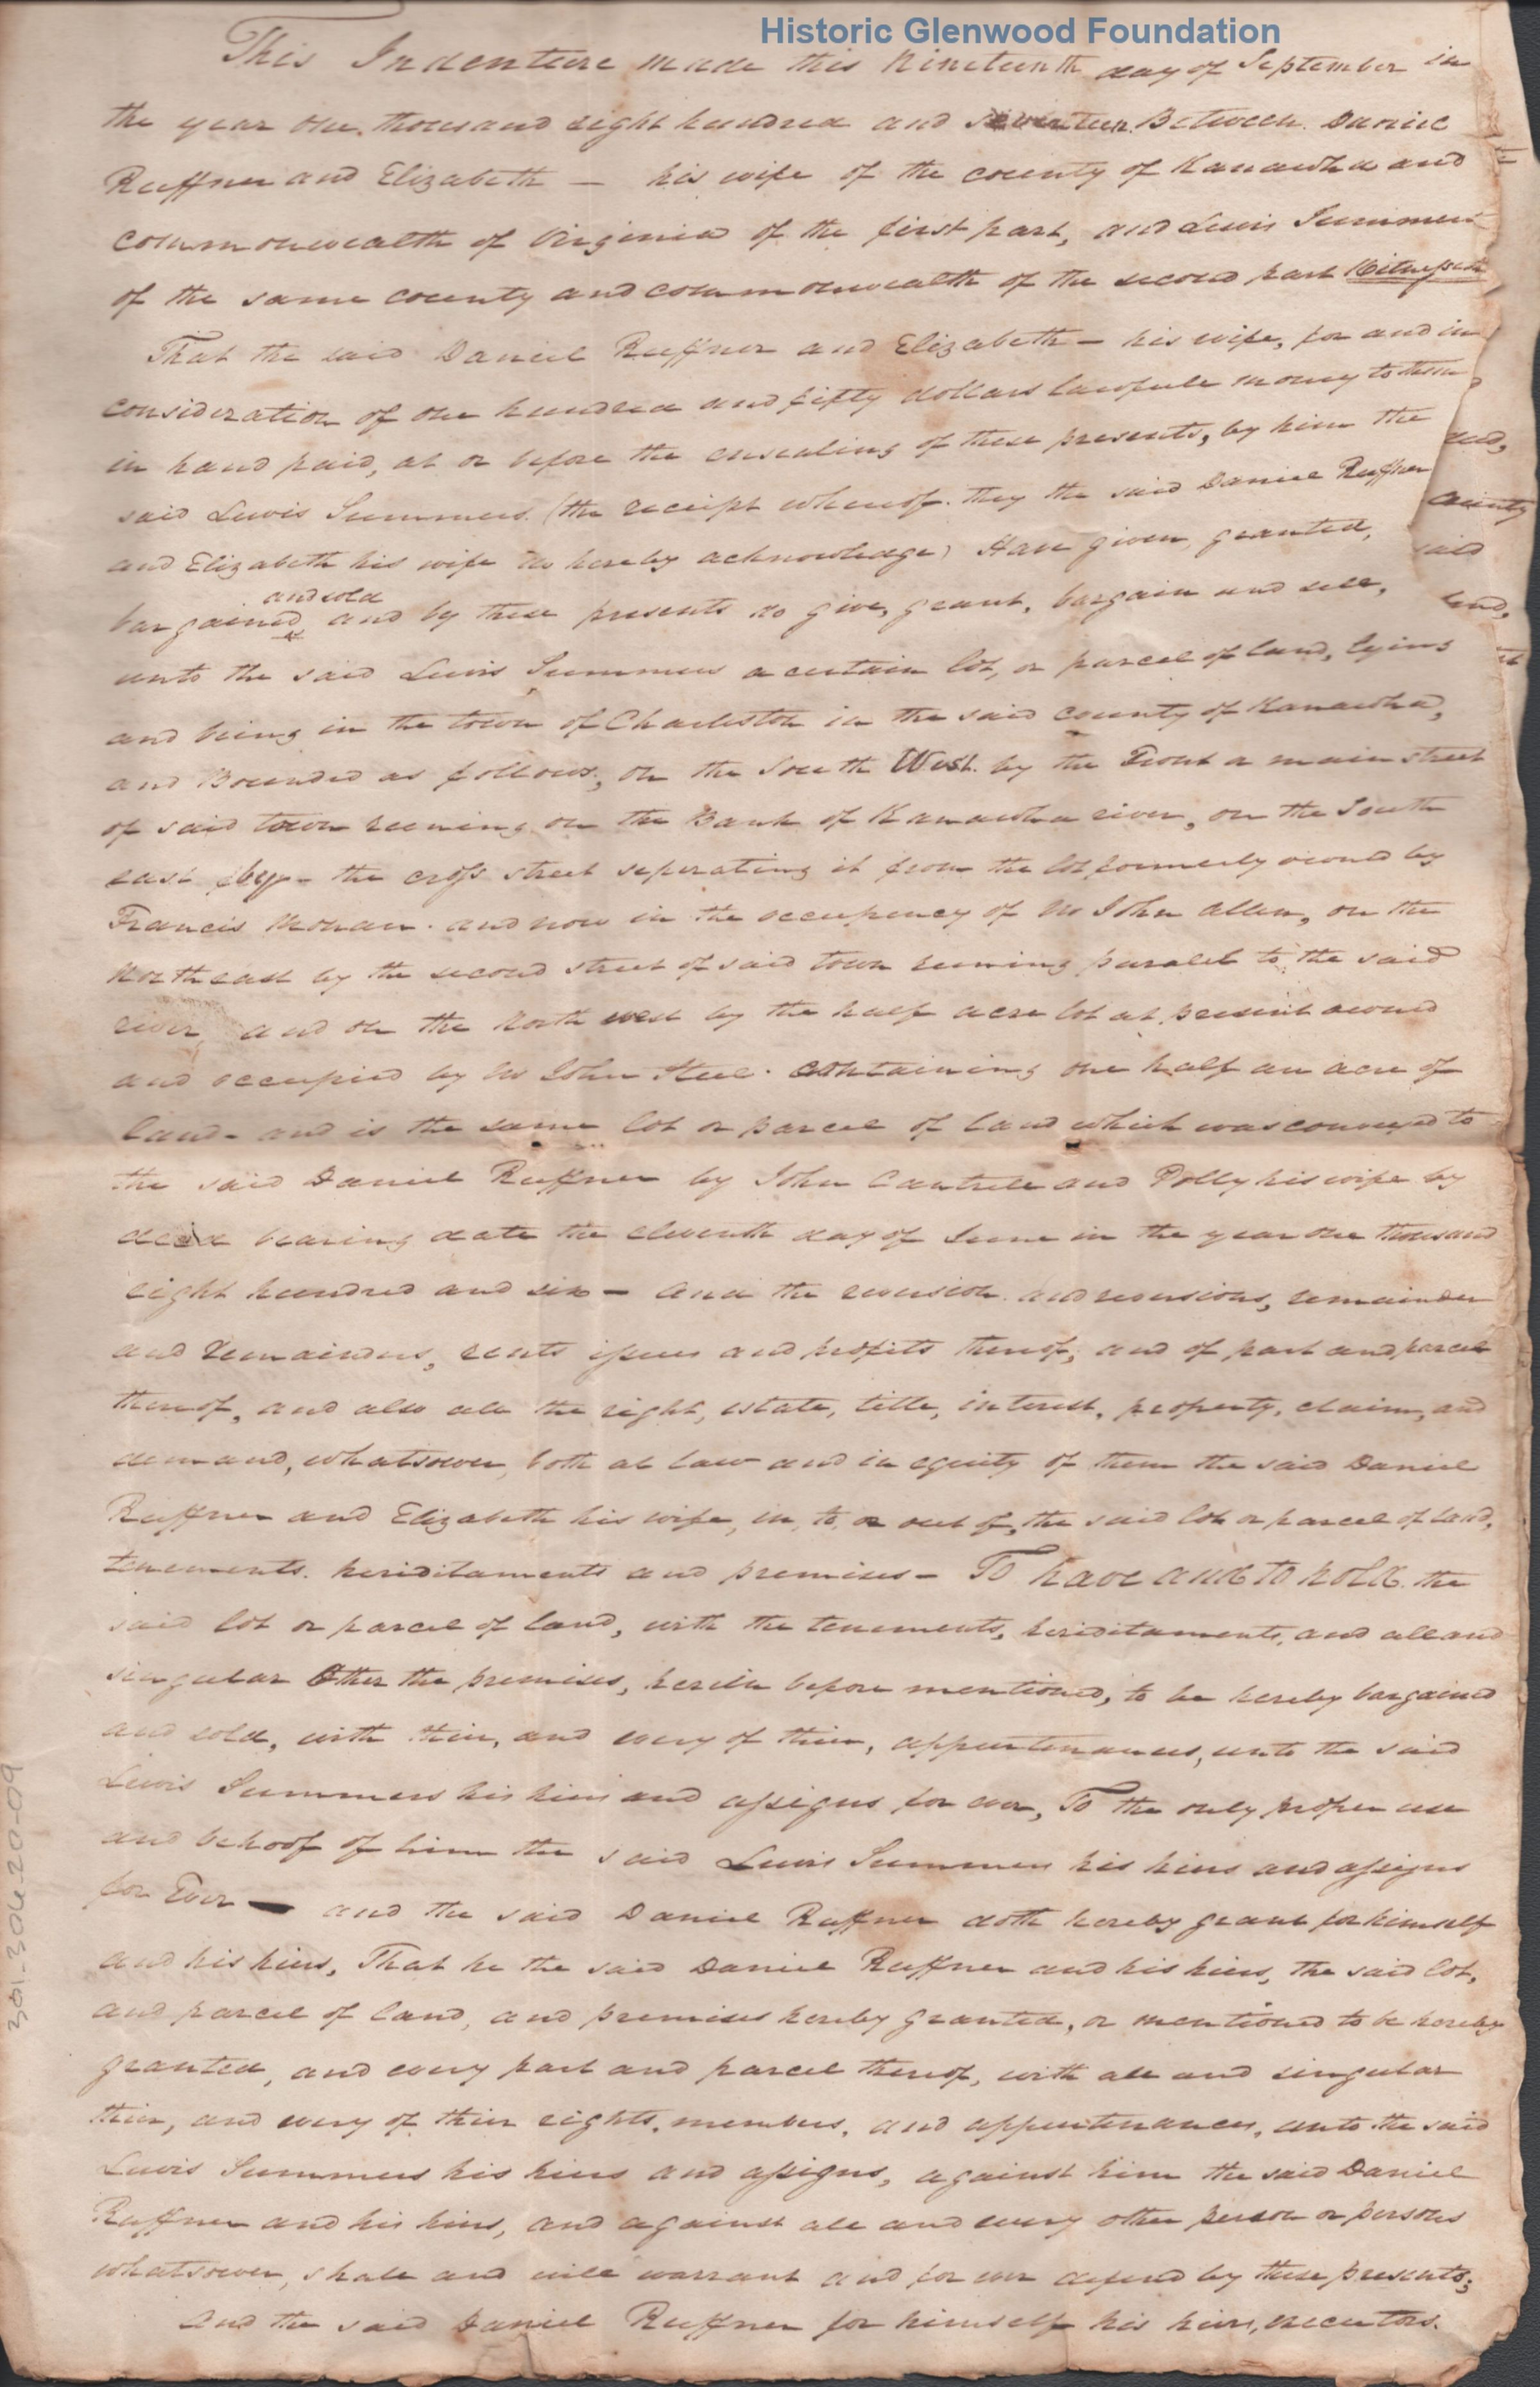 Historic Glenwood Foundation
This Indenture made this Nineteenth day of September in
the year one thousand eight hundred and seventeen Between Daniel
Ruffner and Elizabeth — his wife of the county of Kanawha and
commonwealth of Virginia of the first part, and Lewis Summers
of the same county and commonwealth of the second part Witnesseth
That the said Daniel Ruffner and Elizabeth — his wife, for and in
consideration of one hundred and fifty dollars lawfull money to them
in hand paid, at or before the ensealing of these presents, by him the
said Lewis Summers (the receipt whereof they the said Daniel Ruffner
and Elizabeth his wife do hereby acknowledge) Have given, granted,
and sold
bargained, and by these presents do give, grant, bargain and sell,
unto the said Lewis Summers a certain lot, or parcel of land, lying
and being in the town of Charleston in the said county of Kanawha,
and Bounded as follows, on the South West by the Front or main street
of said town runing on the Bank of Kanawha river, on the South
east by – the cross street seperating it from the lot formerly owned by
Francis and now in the occupency of Mr John Allen, on the
North east by the second street of said town runing paralel to the said
river and on the North west by the half acre lot at present owned
and occupied by Mr John Steel. Containing one half an acre of
land – and is the same lot or parcel of land which was conveyed to
the said Daniel Ruffner by John Cantrell and Polly his wife by
deed bearing date the eleventh day of June in the year one thousand
eight hundred and six – and the reversion and reversions, remainder
and remainders, rents issues and profits thereof, and of part and parcel
thereof, and also all the right, estate, title, interest, property, claim, and
demand, whatsoever, both at law and in equity of them the said Daniel
Ruffner and Elizabeth his wife, in, to, or out of, the said lot or parcel of land,
tenements. heriditaments and premises – To have and to hold the
said lot or parcel of land, with the tenements, heriditaments, and all and
singular Other the premises, herein before mentioned, to be hereby bargained
and sold, with their, and every of their, appurtenances, unto the said
Lewis Summers his heirs and assigns for ever, To the only proper use
and behoof of him the said Lewis Summers his heirs and assigns
for Ever — and the said Daniel Ruffner doth hereby grant for himself
and his heirs, That he the said Daniel Ruffner and his heirs, the said lot,
and parcel of land, and premises hereby granted, or mentioned to be hereby
granted, and every part and parcel thereof, with all and singular
their, and every of their rights, members, and appurtenances, unto the said
Lewis Summers his heirs and assigns, against him the said Daniel
Ruffner and his heirs, and against all and every other person or persons
whatsoever, shall and will warrant and for ever defend by these presents;
And the said Daniel Ruffner for himself his heirs, executors.
county
said
301-3062009